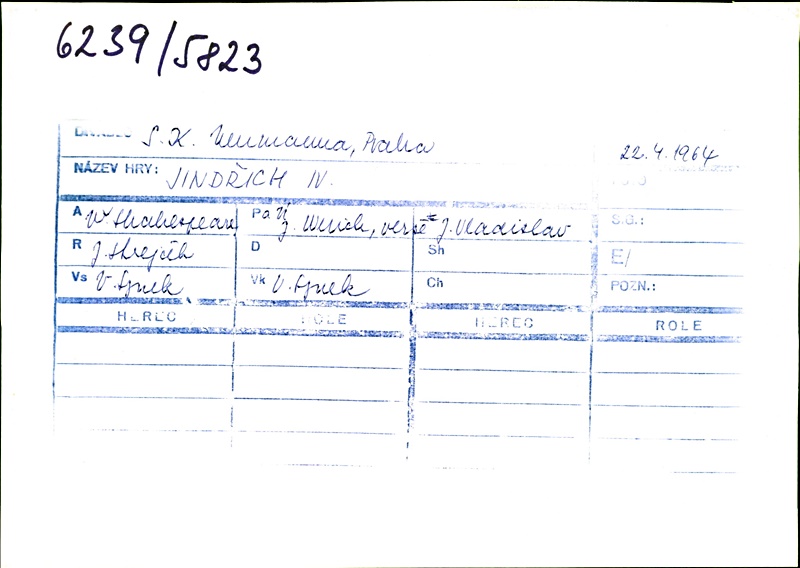 6239/5823
DIVADLO S. K. Neumanna, Praha 22.4.1964
NÁZEV HRY: JINDŘICH IV.
A W. Shakespeare Pa Z. Urlich, verše J. Vladislav S.G.:
R J. Strejček D Sh E/
Vs V. Synek Vk V. Synek Ch POZN.:
HEREC ROLE HEREC ROLE